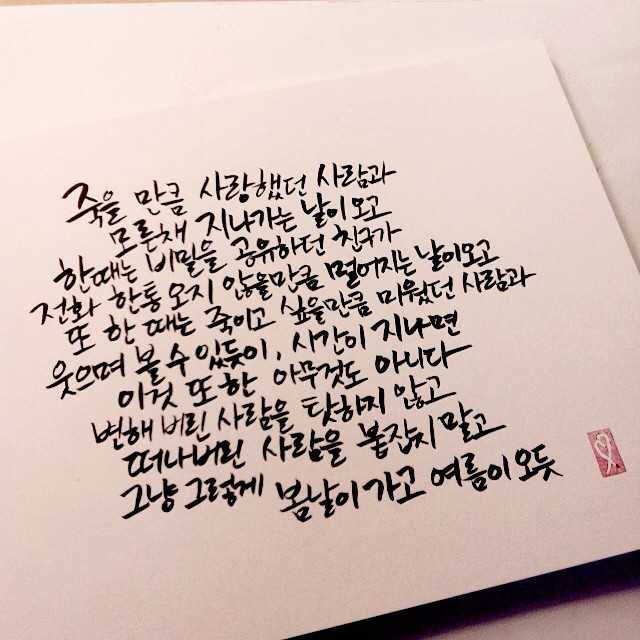 죽을 만큼 사랑했던 사람과
모른채 지나가는 날이 오고
한때는 비밀을 공유하던 친구가
전화 한통 오지 않을만큼 멀어지는 날이오고
또 한 때는 죽이고 싶을만큼 미웠던 사람과
웃으며 볼 수 있듯이, 시간이 지나면
이것 또한 아무것도 아니다
변해 버린 사람을 탓하지 않고
떠나버린 사람을 붙잡지 말고
그냥 그렇게 봄날이 가고 여름이 오듯